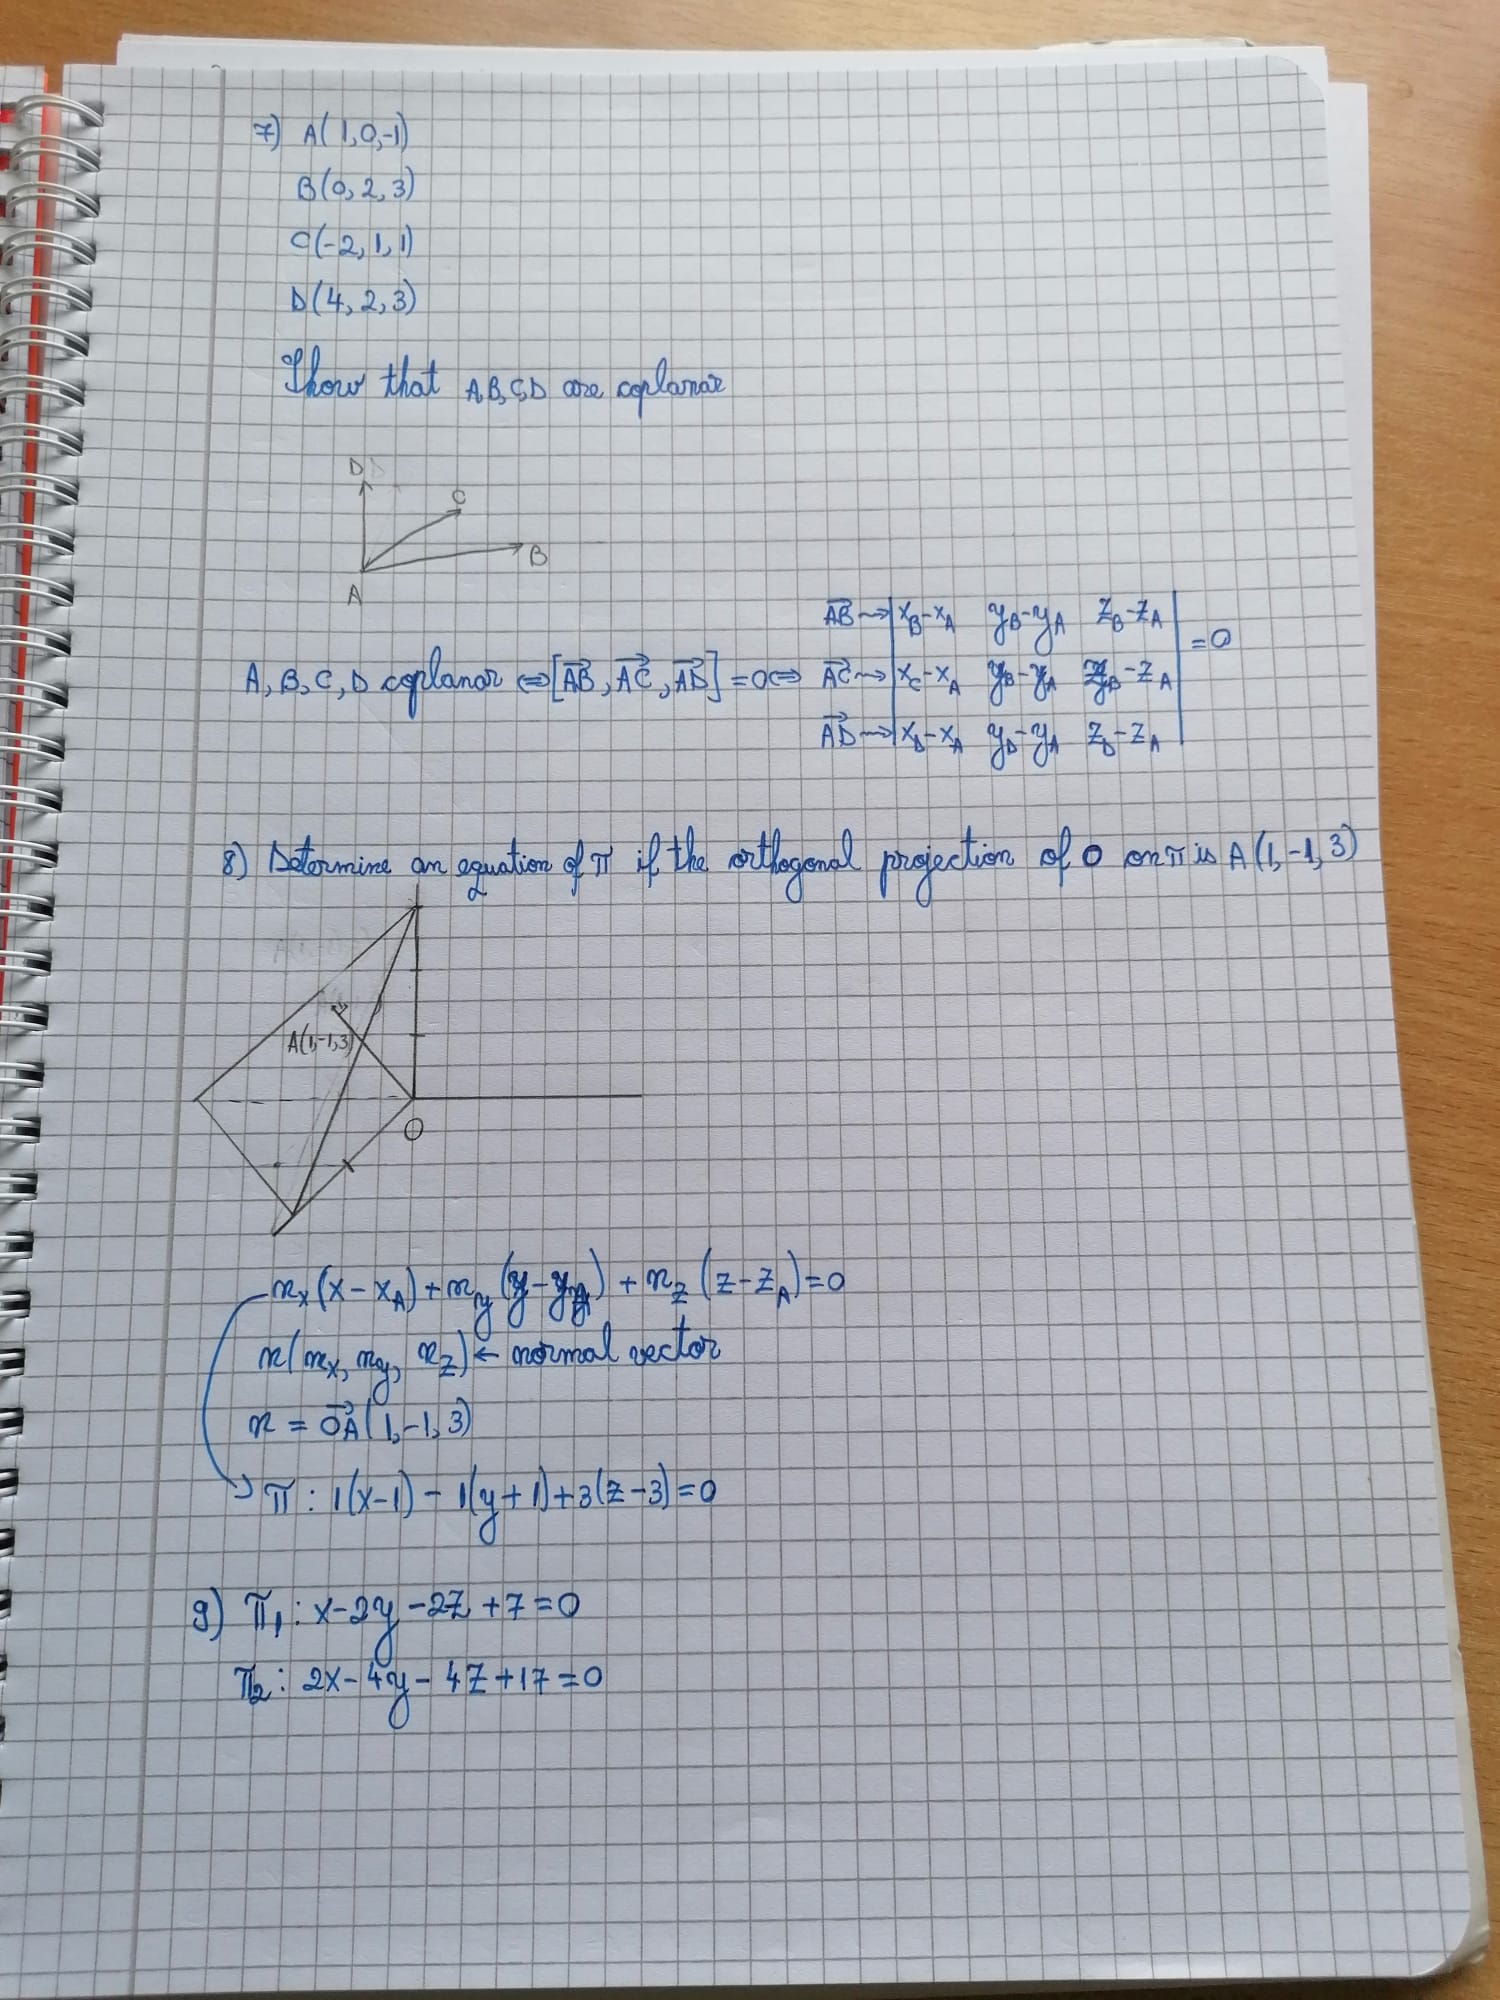 7) A(1,0,-1)
B(0,2,3)
C(-2,1,1)
D(4,2,3)
Show that A,B,C,D are coplanar
D
C
B
A
A, B, C, D coplanar ⇔ [AB⃗, AC⃗, AD⃗] = 0 ⇔
AB⃗ → | x_B-x_A y_B-y_A z_B-z_A |
AC⃗ → | x_C-x_A y_B-y_A z_B-z_A | = 0
AD⃗ → | x_D-x_A y_D-y_A z_D-z_A |
8) Determine an equation of π if the orthogonal projection of O on π is A(1,-1,3)
A(1,-1,3)
O
n_x(x-x_A) + n_y(y-y_A) + n_z(z-z_A) = 0
n(n_x, n_y, n_z) ← normal vector
n = OA⃗(1,-1,3)
π : 1(x-1) - 1(y+1) + 3(z-3) = 0
9) π₁ : x-2y-2z+7=0
π₂ : 2x-4y-4z+17=0